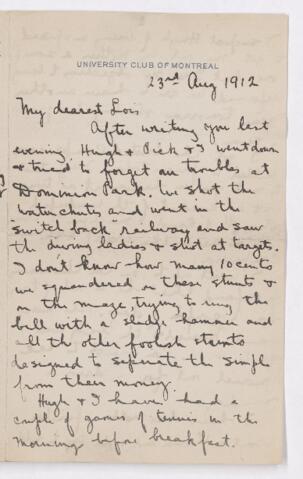 UNIVERSITY CLUB OF MONTREAL
23rd Aug 1912
My dearest Lois
After writing you last
evening Hugh & Dick & I went down
& tried to forget our troubles at
Dominion Park. We shot the
water chutes and went in the
"switch back" railway and saw
the diving ladies & shot at targets.
I don't know how many 10 cents
we squandered in these stunts &
in the maze, trying to ring the
bell with a sledge hammer and
all the other foolish stunts
designed to seperate the simple
from their money.
Hugh & I have had a
couple of games of tennis in the
morning before breakfast.